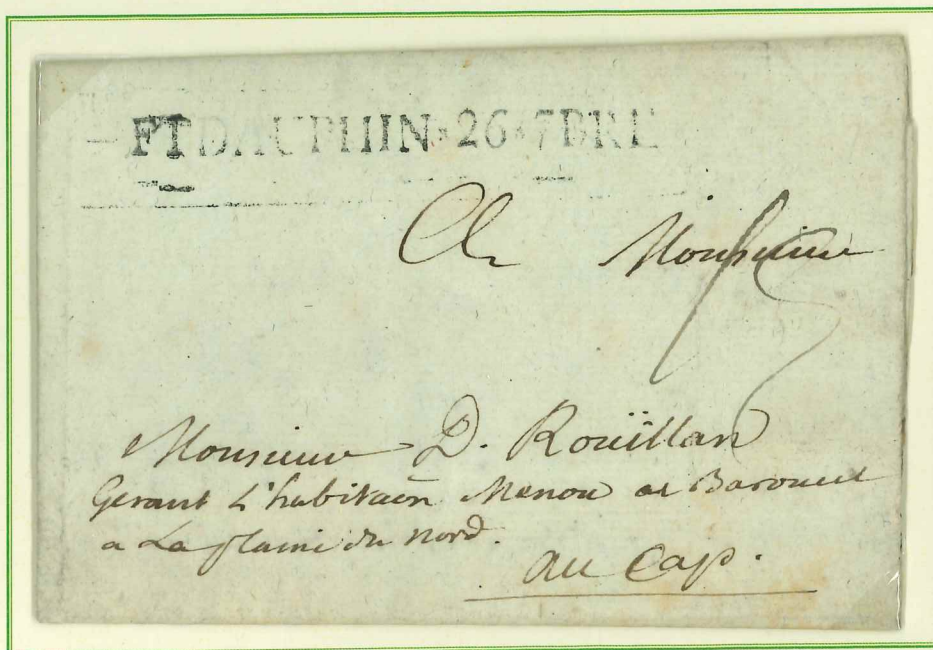 FT DAUPHIN 26 7BRE
A Monsieur
Monsieur D. Roüillan
Gerant L'habitaõn Menou et Barouet
a La plaine du Nord.
au Cap.